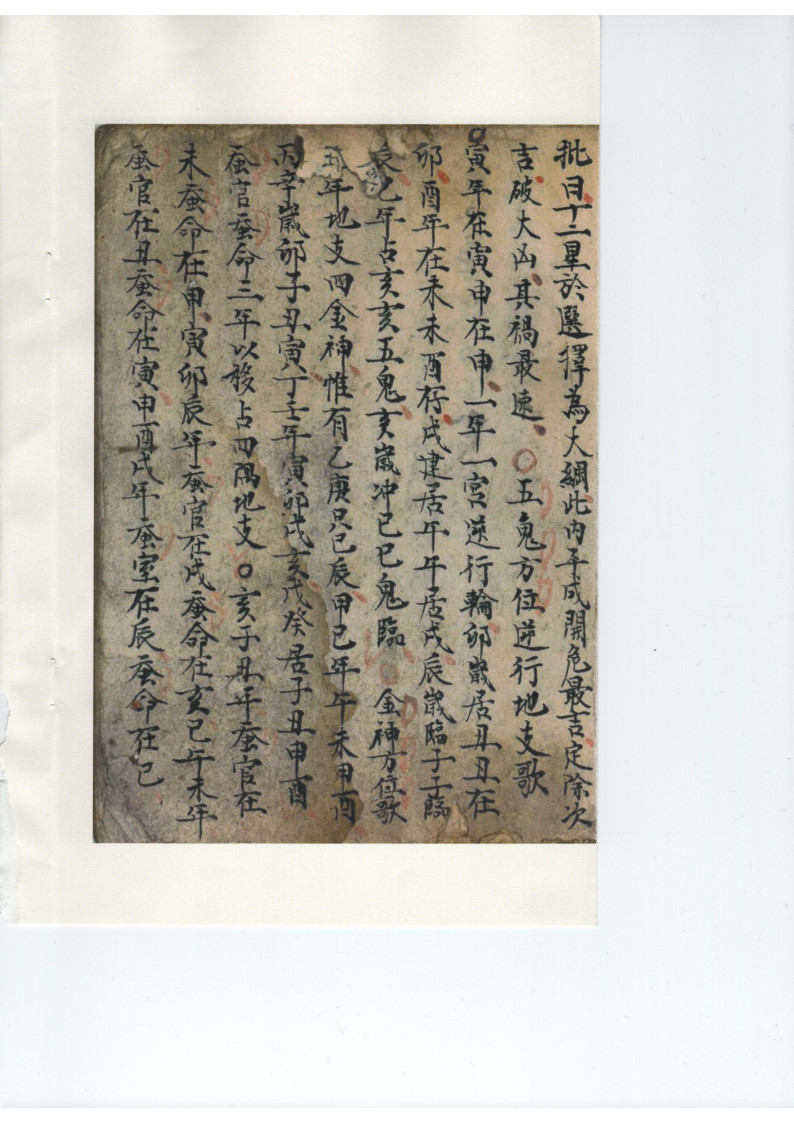 批日十二星於選擇為大綱此内平成開危最吉定除次
吉破大凶其禍最速〇五鬼方位逆行地支歌
寅年在寅申在申一年一宮逆行輪卯歲居丑丑在
卯酉年在未未酉存戌建居午午居戌辰歲臨子子臨
辰巳年占亥亥五鬼亥歲冲巳巳鬼臨 金神方位歌
年地支四金神惟有乙庚只巳辰甲己年午未甲酉
丙辛歲卯子丑寅丁壬年寅卯戌亥戊癸居子丑申酉
蚕言蚕命三年以移占四隅地支〇亥子丑年蚕官在
未蚕命在甲寅卯辰年蚕官在戌蚕命在亥巳午未年
蚕官在丑蚕命在寅申酉戌年蚕室在辰蚕命在巳